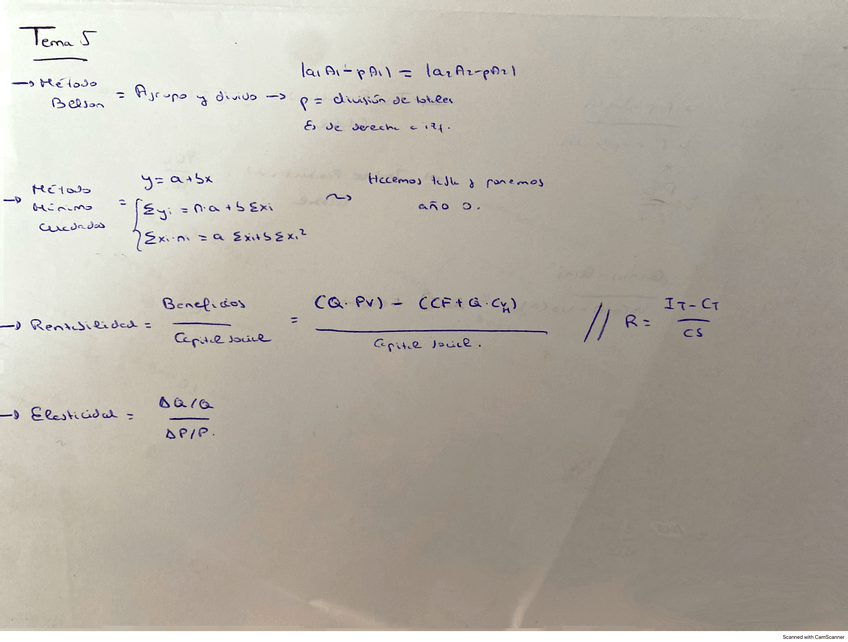 Tema 5
→ Método Belson = Agrupo y divido → |a₁A₁-pA₁| = |a₂A₂-pA₂|
p = división de totales
Es de derecha a izq.
→ Método Mínimo Cuadrados = y = a+bx
Σyi = n·a + bΣxi
Σxi·ni = a Σxi+bΣxi²
⤳ Hacemos tabla y ponemos año 0.
→ Rentabilidad = Beneficios / Capital social = (Q·PV) - (CF+Q·CVu) / Capital social. // R = IT-CT / CS
→ Elasticidad = ΔQ/Q / ΔP/P.
Scanned with CamScanner